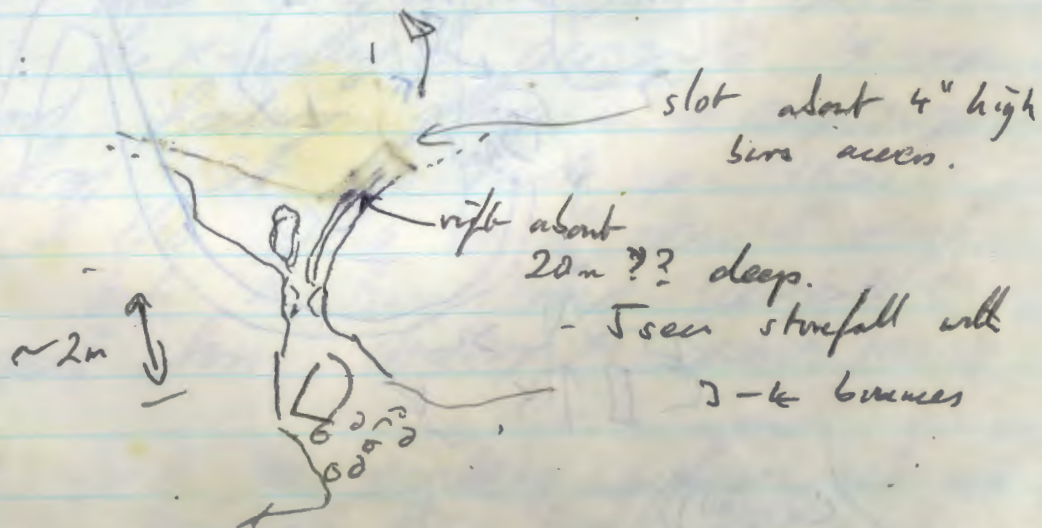 slot about 4" high
access.
rift about
20m ?? deep.
- 5 secs stonefall with
bounces
~2m